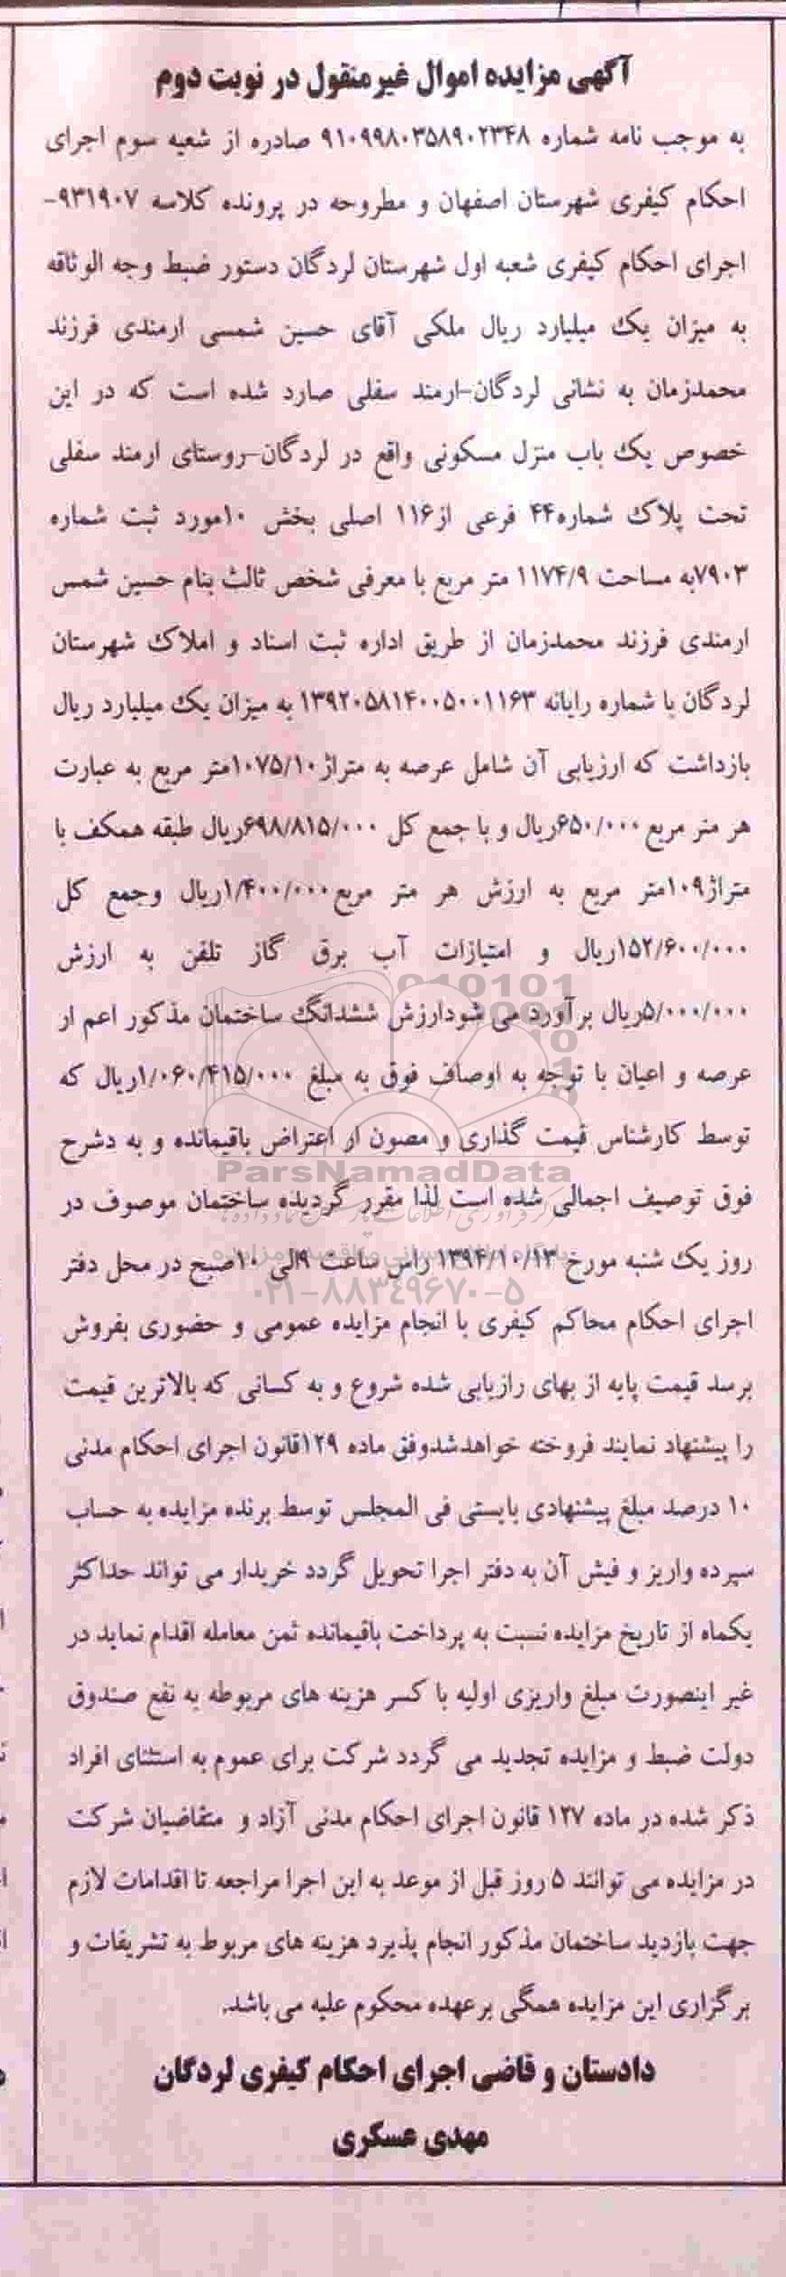 آگهی مزایده اموال غیرمنقول در نوبت دوم
به موجب نامه شماره ۹۱۰۹۹۸۰۳۵۸۹۰۲۳۴۸ صادره از شعبه سوم اجرای
احکام کیفری شهرستان اصفهان و مطروحه در پرونده کلاسه ۹۳۱۹۰۷-
اجرای احکام کیفری شعبه اول شهرستان لردگان دستور ضبط وجه الوثاقه
به میزان یک میلیارد ریال ملکی آقای حسین شمسی ارمندی فرزند
محمدزمان به نشانی لردگان-ارمند سفلی صارد شده است که در این
خصوص یک باب منزل مسکونی واقع در لردگان-روستای ارمند سفلی
تحت پلاک شماره۴۴ فرعی از۱۱۶ اصلی بخش ۱۰مورد ثبت شماره
۷۹۰۳به مساحت ۱۱۷۴/۹ متر مربع با معرفی شخص ثالث بنام حسین شمس
ارمندی فرزند محمدزمان از طریق اداره ثبت اسناد و املاک شهرستان
لردگان با شماره رایانه ۱۳۹۲۰۵۸۱۴۰۰۵۰۰۱۱۶۳ به میزان یک میلیارد ریال
بازداشت که ارزیابی آن شامل عرصه به متراژ۱۰۷۵/۱۰متر مربع به عبارت
هر متر مربع ۶۵۰/۰۰۰ریال و با جمع کل ۶۹۸/۸۱۵/۰۰۰ریال طبقه همکف با
متراژ۱۰۹متر مربع به ارزش هر متر مربع۱/۴۰۰/۰۰۰ریال وجمع کل
۱۵۲/۶۰۰/۰۰۰ریال و امتیازات آب برق گاز تلفن به ارزش
۵/۰۰۰/۰۰۰ریال برآورد می شودارزش ششدانگ ساختمان مذکور اعم از
عرصه و اعیان با توجه به اوصاف فوق به مبلغ ۱/۰۶۰/۴۱۵/۰۰۰ریال که
توسط کارشناس قیمت گذاری و مصون از اعتراض باقیمانده و به دشرح
ParsNamadData
فوق توصیف اجمالی شده است لذا مقرر گردیده ساختمان موصوف در
روز یک شنبه مورخ ۱۳۹۴/۱۰/۱۳ راس ساعت ۹الی ۱۰صبح در محل دفتر
۰۲۱-۸۸۳۴۹۶۷۰-۵
اجرای احکام محاکم کیفری با انجام مزایده عمومی و حضوری بفروش
برسد قیمت پایه از بهای رازیابی شده شروع و به کسانی که بالاترین قیمت
را پیشنهاد نمایند فروخته خواهدشدوفق ماده ۱۲۹قانون اجرای احکام مدنی
۱۰ درصد مبلغ پیشنهادی بایستی فی المجلس توسط برنده مزایده به حساب
سپرده واریز و فیش آن به دفتر اجرا تحویل گردد خریدار می تواند حداکثر
یکماه از تاریخ مزایده نسبت به پرداخت باقیمانده ثمن معامله اقدام نماید در
غیر اینصورت مبلغ واریزی اولیه با کسر هزینه های مربوطه به نفع صندوق
دولت ضبط و مزایده تجدید می گردد شرکت برای عموم به استثنای افراد
ذکر شده در ماده ۱۲۷ قانون اجرای احکام مدنی آزاد و متقاضیان شرکت
در مزایده می توانند ۵ روز قبل از موعد به این اجرا مراجعه تا اقدامات لازم
جهت بازدید ساختمان مذکور انجام پذیرد هزینه های مربوط به تشریفات و
برگزاری این مزایده همگی برعهده محکوم علیه می باشد.
دادستان و قاضی اجرای احکام کیفری لردگان
مهدی عسکری